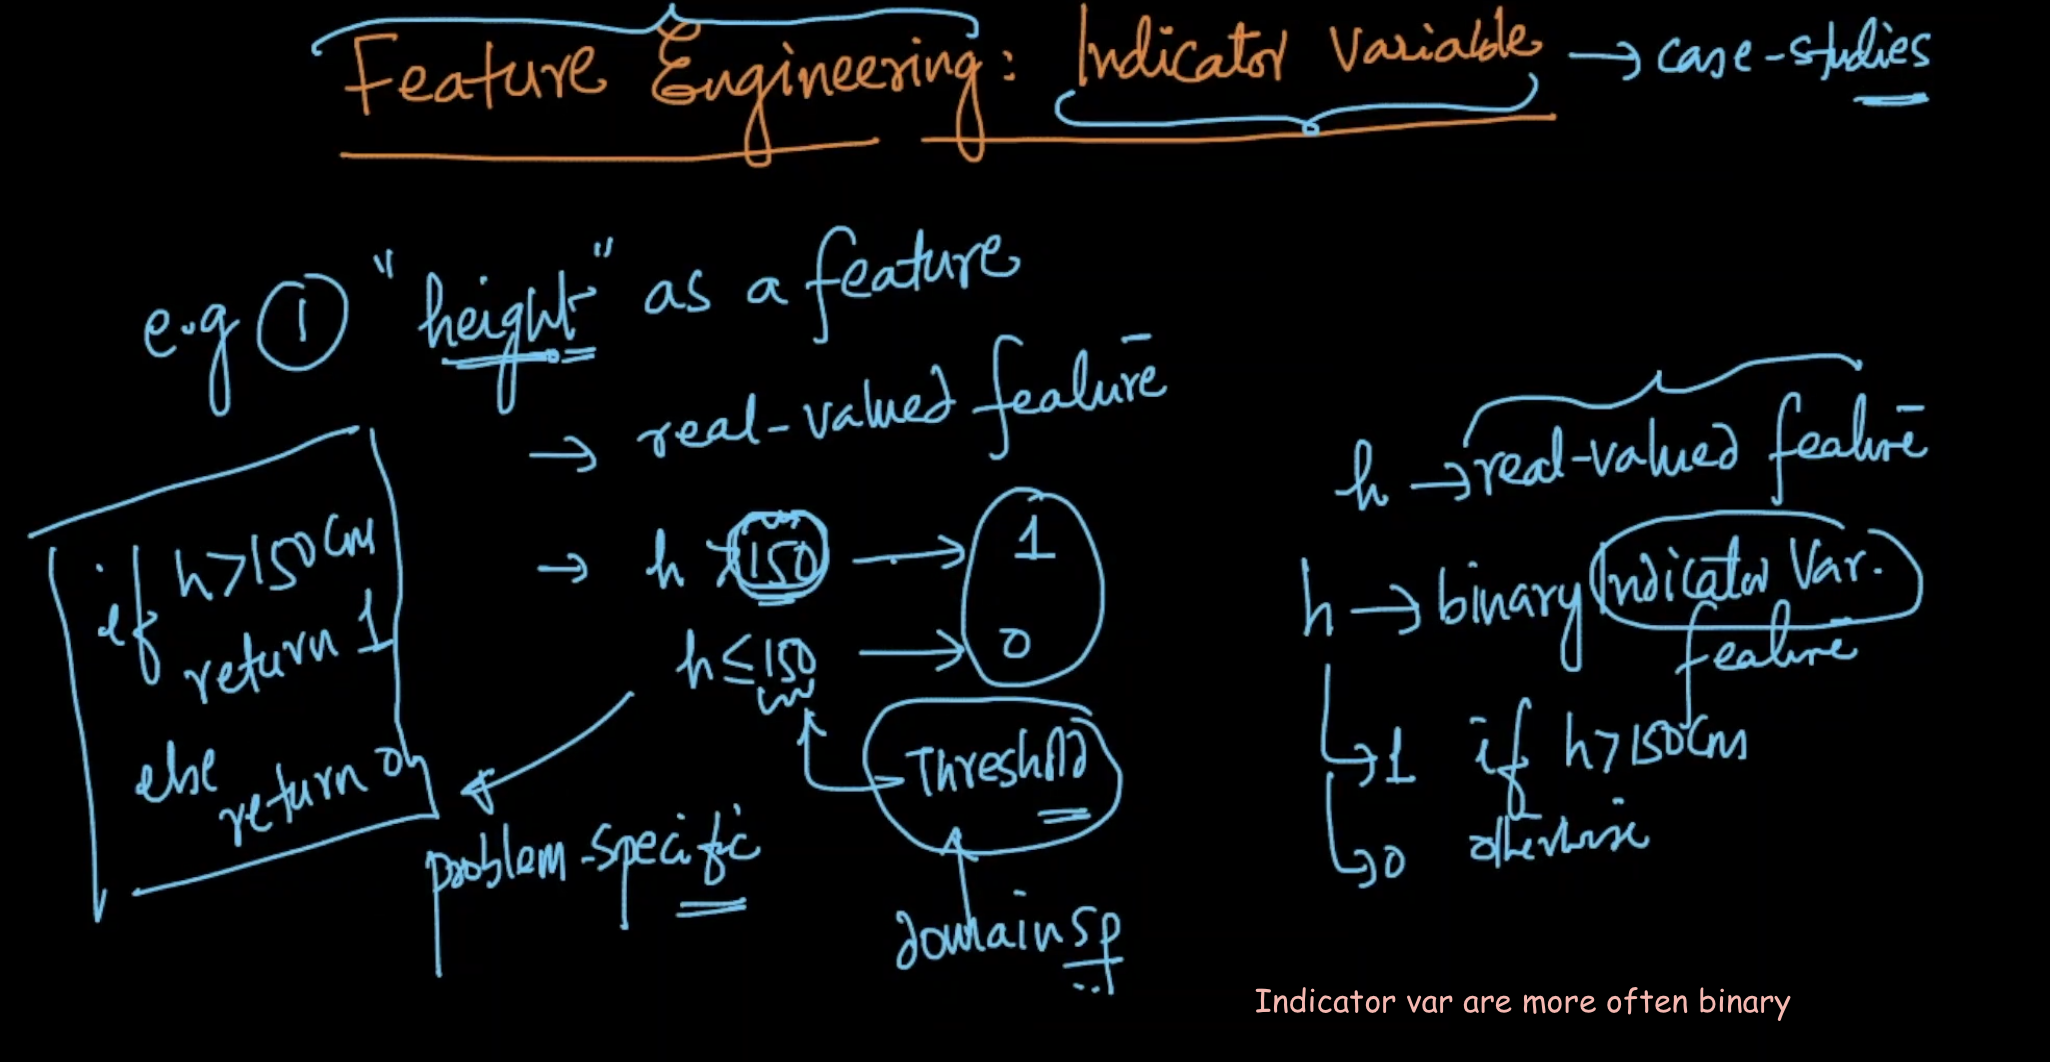 Feature Engineering: Indicator Variable → case-studies
e.g ① "height" as a feature
→ real-valued feature
→ h > 150 → 1
h ≤ 150 → 0
Threshold
domain sp
problem-specific
if h > 150cm
return 1
else
return 0
h → real-valued feature
h → binary Indicator Var.
feature
→ 1 if h > 150cm
→ 0 otherwise
Indicator var are more often binary